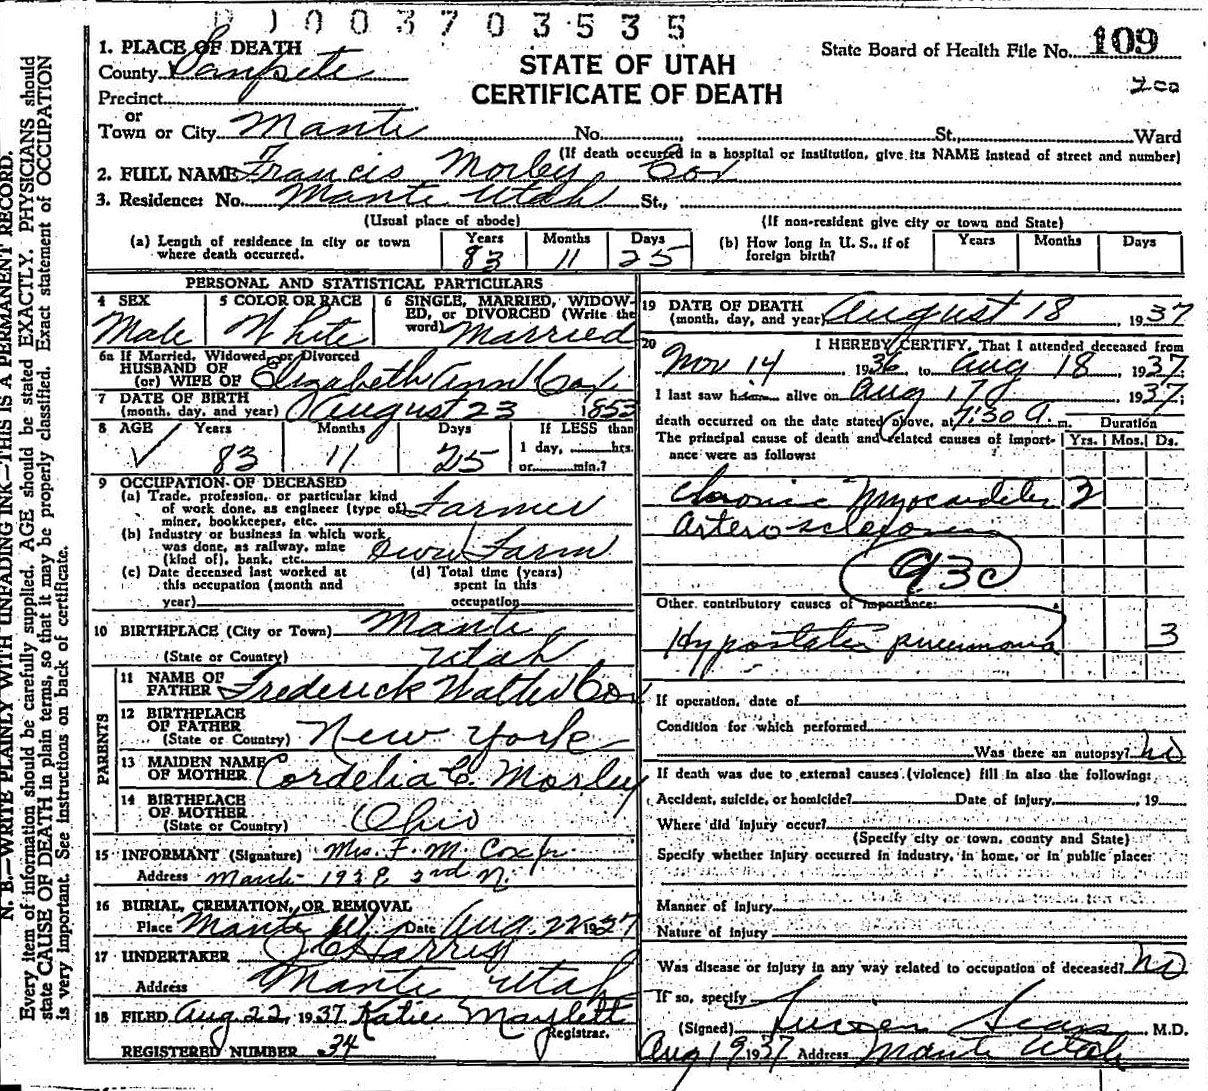 D 1 0 0 3 7 0 3 5 3 5
State Board of Health File No. 109
200
STATE OF UTAH
CERTIFICATE OF DEATH
1. PLACE OF DEATH
County Sanpete
Precinct
or
Town or City Manti No. St., Ward
(If death occurred in a hospital or institution, give its NAME instead of street and number)
2. FULL NAME Francis Morley Cox
3. Residence: No. Manti Utah St.,
(Usual place of abode) (If non-resident give city or town and State)
(a) Length of residence in city or town where death occurred. Years 83 Months 11 Days 25
(b) How long in U. S., if of foreign birth? Years Months Days
PERSONAL AND STATISTICAL PARTICULARS
4 SEX Male
5 COLOR OR RACE White
6 SINGLE, MARRIED, WIDOW-
ED, or DIVORCED (Write the
word) Married
6a If Married, Widowed, or Divorced
HUSBAND OF
(or) WIFE OF Elizabeth Ann Cox
7 DATE OF BIRTH
(month, day, and year) August 23 1853
8 AGE Years 83 Months 11 Days 25
If LESS than
1 day, hrs.
or min.?
9 OCCUPATION OF DECEASED
(a) Trade, profession, or particular kind
of work done, as engineer (type of)
miner, bookkeeper, etc. Farmer
(b) Industry or business in which work
was done, as railway, mine
(kind of), bank, etc. Own Farm
(c) Date deceased last worked at
this occupation (month and
year)
(d) Total time (years)
spent in this
occupation
10 BIRTHPLACE (City or Town) Manti
(State or Country) Utah
PARENTS
11 NAME OF
FATHER Frederick Walter Cox
12 BIRTHPLACE
OF FATHER
(State or Country) New York
13 MAIDEN NAME
OF MOTHER Cordelia C. Morley
14 BIRTHPLACE
OF MOTHER
(State or Country) Ohio
15 INFORMANT (Signature) Mrs. F. M. Cox jr.
Address Manti 193 E 2nd N.
16 BURIAL, CREMATION, OR REMOVAL
Place Manti Date Aug. 22 1937
17 UNDERTAKER Harris
Address Manti Utah
18 FILED Aug 22, 1937 Katie Maylett
Registrar.
REGISTERED NUMBER 34
19 DATE OF DEATH
(month, day, and year) August 18, 1937
20 I HEREBY CERTIFY, That I attended deceased from
Nov 14, 1936 to Aug 18, 1937;
I last saw him alive on Aug 17, 1937;
death occurred on the date stated above, at 7:30 a. m. Duration
The principal cause of death and related causes of import- Yrs. Mos. Ds.
ance were as follows:
Chronic Myocarditis 2
Arterosclerosis
93c
Other contributory causes of importance:
Hypostatic pneumonia 3
If operation, date of
Condition for which performed
Was there an autopsy? no
If death was due to external causes (violence) fill in also the following:
Accident, suicide, or homicide? Date of injury , 19
Where did injury occur?
(Specify city or town, county and State)
Specify whether injury occurred in industry, in home, or in public place:
Manner of injury
Nature of injury
Was disease or injury in any way related to occupation of deceased? no
If so, specify
(Signed) Sears M.D.
Aug 19 1937 Address Manti Utah
N. B.—WRITE PLAINLY WITH UNFADING INK—THIS IS A PERMANENT RECORD.
Every item of information should be carefully supplied. AGE should be stated EXACTLY. PHYSICIANS should
state CAUSE OF DEATH in plain terms, so that it may be properly classified. Exact statement of OCCUPATION
is very important. See instructions on back of certificate.